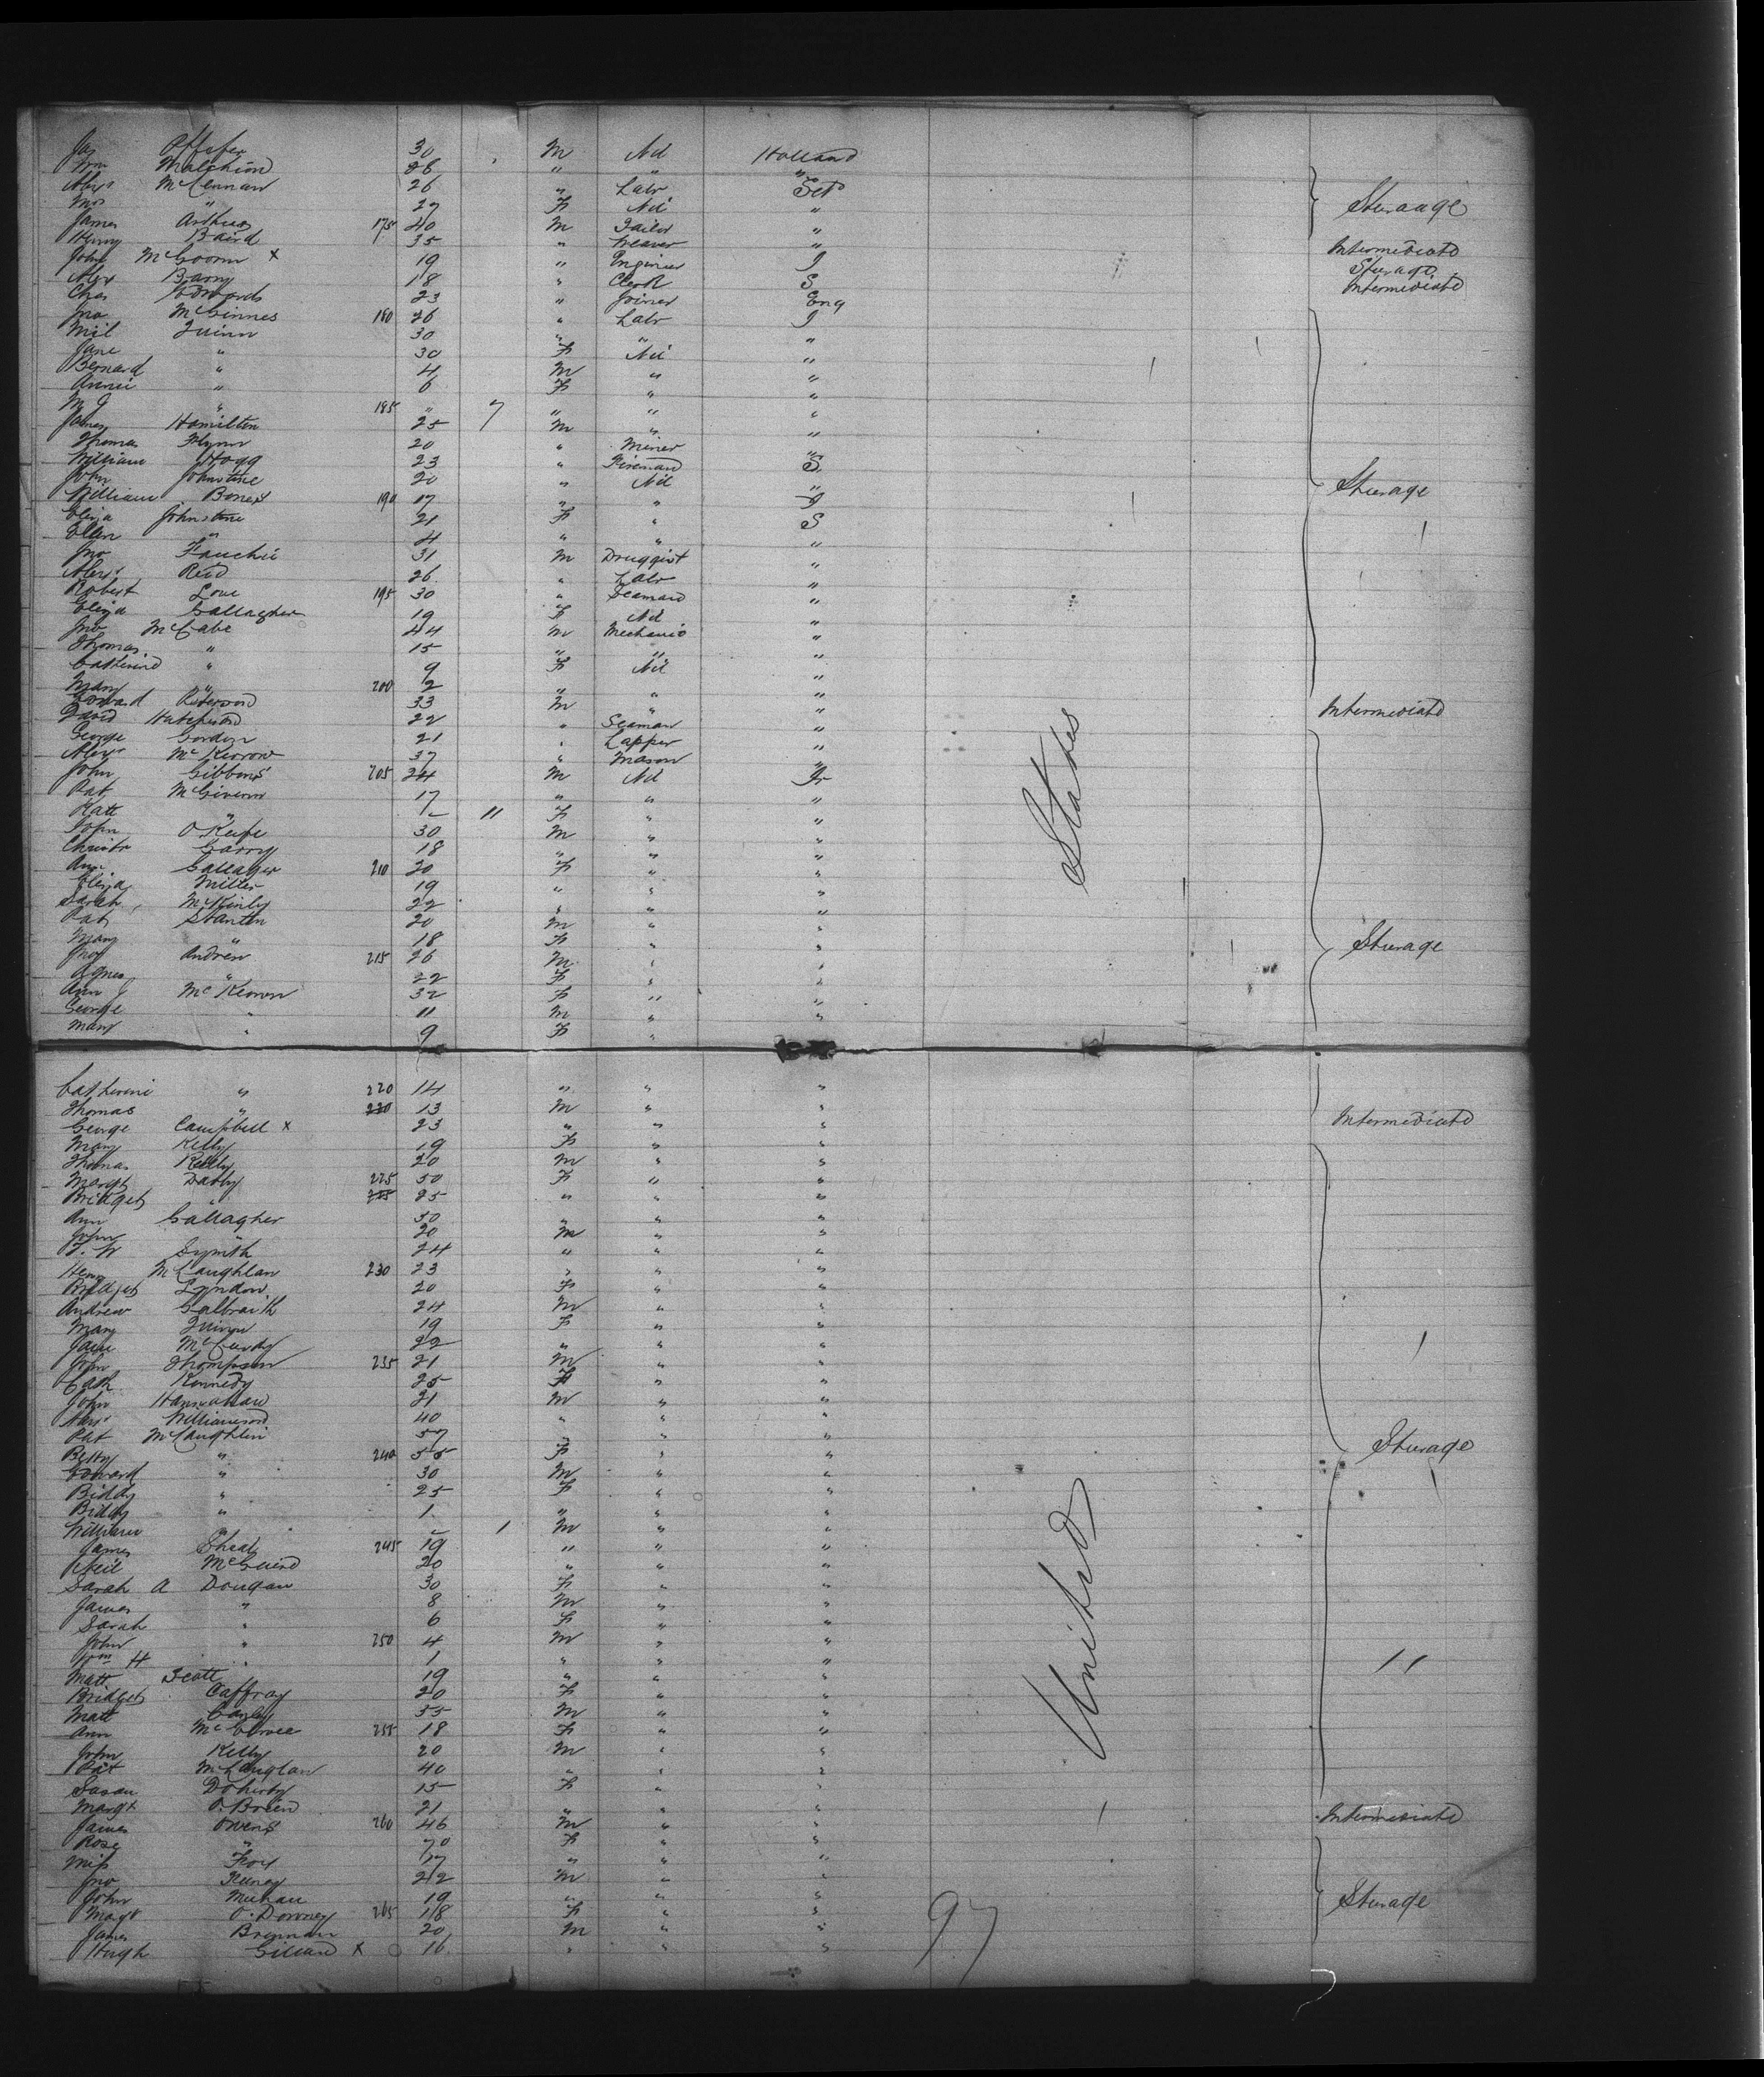 Jas Pfeifer 30 M Nil Holland
Wm Malchion 28 " " "
Alexr McLennan 26 " Labr Sct
Mrs " 27 F Nil "
James Arthur 175 40 M Tailor "
Henry Baird 35 " Weaver " Intermediate
John McCoorm x 19 " Engineer I Sturage
Alex Barry 18 " Clerk S Intermediate
Chas Edwards 23 " Joiner Eng
Jno McGinnes 180 26 " Labr I
Mil Quinn 30 " " "
Jane " 30 F Nil "
Bernard " 4 M " "
Annie " 6 F " "
M J " 185 " 7 " " "
James Hamilton 25 M " "
Thomas Flynn 20 " Miner "
William Hogg 23 " Fireman S
John Johnstine 20 " Nil " Sturage
William Bones 190 17 " " I
Eliza Johnstone 21 F " S
Ellen " 4 " " "
Jno Fauchie 31 M Druggist "
Alexr Reid 26 " Labr "
Robert Love 195 30 " Seaman "
Eliza Gallagher 19 F Nil "
Jno McCabe 44 M Mechanic "
Thomas " 15 " " "
Catherine " 9 F Nil "
Mary " 200 2 " " "
Edward 33 M " " Intermediate
David Hutchison 22 " Seaman "
George Gordon 21 " Lapper "
Alexr McKerrow 37 " Mason "
John Gibbons 205 24 M Nil Ir
Pat McGivern 17 " " "
Kate " 11 F " "
John O Keefe 30 M " "
Christr Garry 18 " " "
Ann Gallager 210 20 F " "
Eliza Miller 19 " " "
Sarah McKinly 22 " " "
Pat Stanten 20 M " "
Mary " 18 F " " Sturage
Jno Andrew 215 26 M " "
Agnes " 22 F " "
Ann J McKeown 32 F " "
George " 11 M " "
Mary " 9 F "
Catherine " 220 14 " " "
Thomas " 220 13 M " "
George Campbell x 23 " " " Intermediate
Mary Kelly 19 F " "
Thomas Kelly 20 M " "
Margt Darby 225 50 F " "
Bridget " 225 25 " " "
Ann Gallagher 50 " " "
John " 20 M " "
T. W Symith 24 " " "
Henry McLaughlan 230 23 " " "
Bridget Lyndon 20 F " "
Andrew Galbraith 24 M " "
Mary Quinn 19 F " "
Jane McCurdy 22 " " "
John Thompson 235 21 M " "
Cath Kennedy 25 F " "
John Hannahan 21 M " "
Alexr Williamson 40 " " "
Pat McLaughlin 57 " " "
Betty " 240 55 F " " Sturage
Edward " 30 M " "
Biddy " 25 F " "
Biddy " 1 " " "
William " 1 M " "
James Sheals 245 19 " " "
Neil McGuire 20 " " "
Sarah A Dougan 30 F " "
James " 8 M " "
Sarah " 6 F " "
John " 250 4 M " "
Wm H " 1 " " "
Matt Scott 19 " " "
Bridget Caffray 20 F " "
Matt Canly 35 M " "
Ann 255 18 F " "
John Kelly 20 M " "
Pat McLauglan 40 " " "
Susan Doherty 15 F " "
Margt O. Brien 21 " " " Intermediate
James Owens 260 46 M " "
Rose " 70 F " "
Miss Fox 17 " " "
Jno 22 M " "
John Meehan 19 " " " Sturage
Margt O. Downey 265 18 F " "
James Brennan 20 M " "
Hugh Gillard x 16 " " "
United States
97